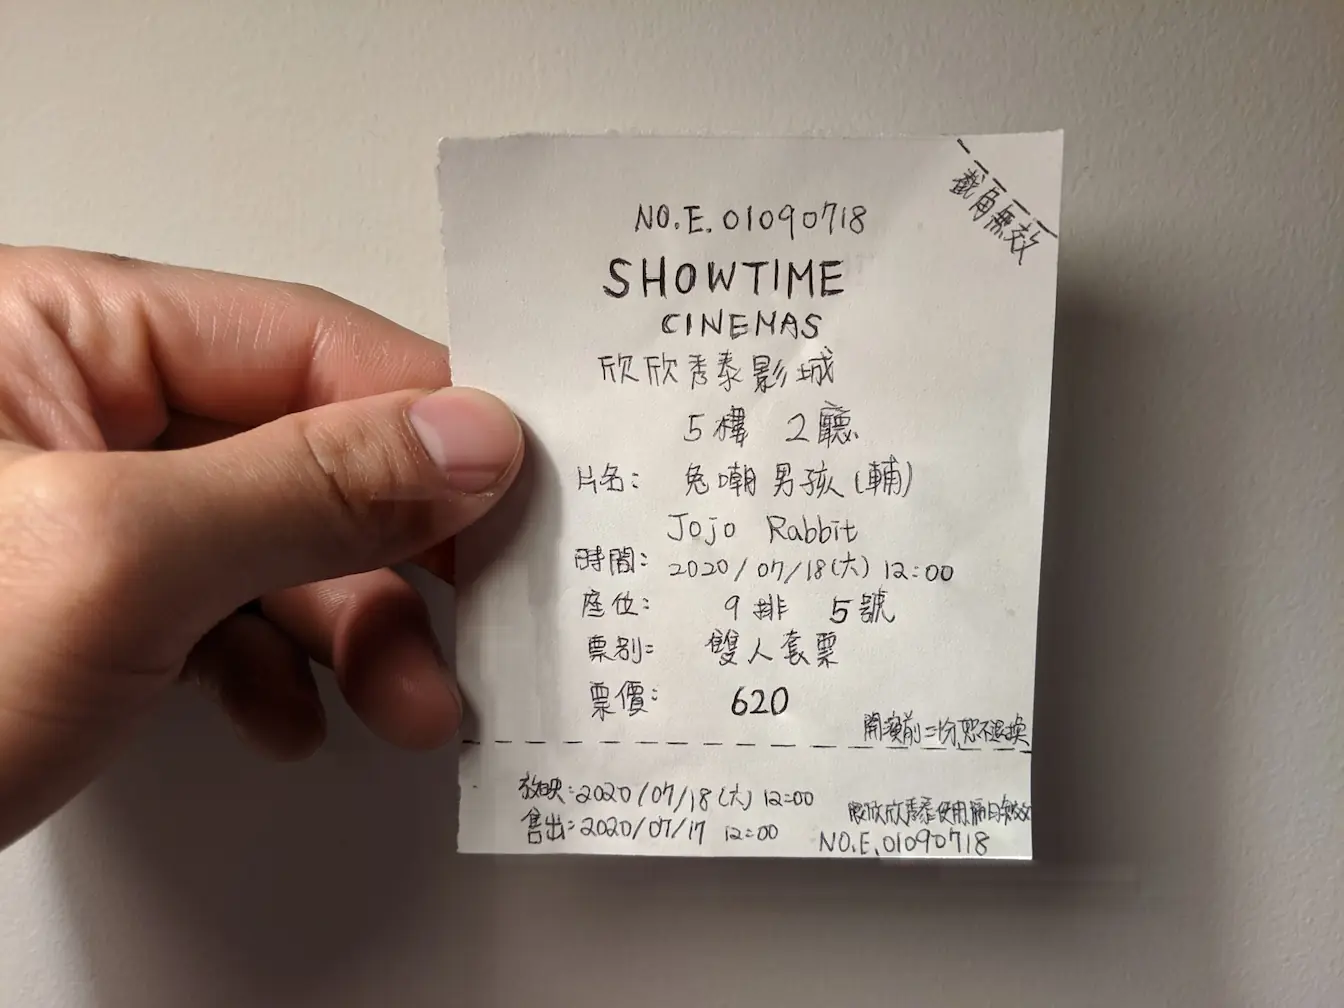 截角無效
NO.E.01090718
SHOWTIME
CINEMAS
欣欣秀泰影城
5樓 2廳
片名: 兔嘲男孩(輔)
Jojo Rabbit
時間: 2020/07/18(六) 12:00
座位: 9排 5號
票別: 雙人套票
票價: 620
開演前 恕不退換
放映:2020/07/18(六) 12:00
售出:2020/07/17 12:00
限欣欣秀泰使用隔日無效
NO.E.01090718